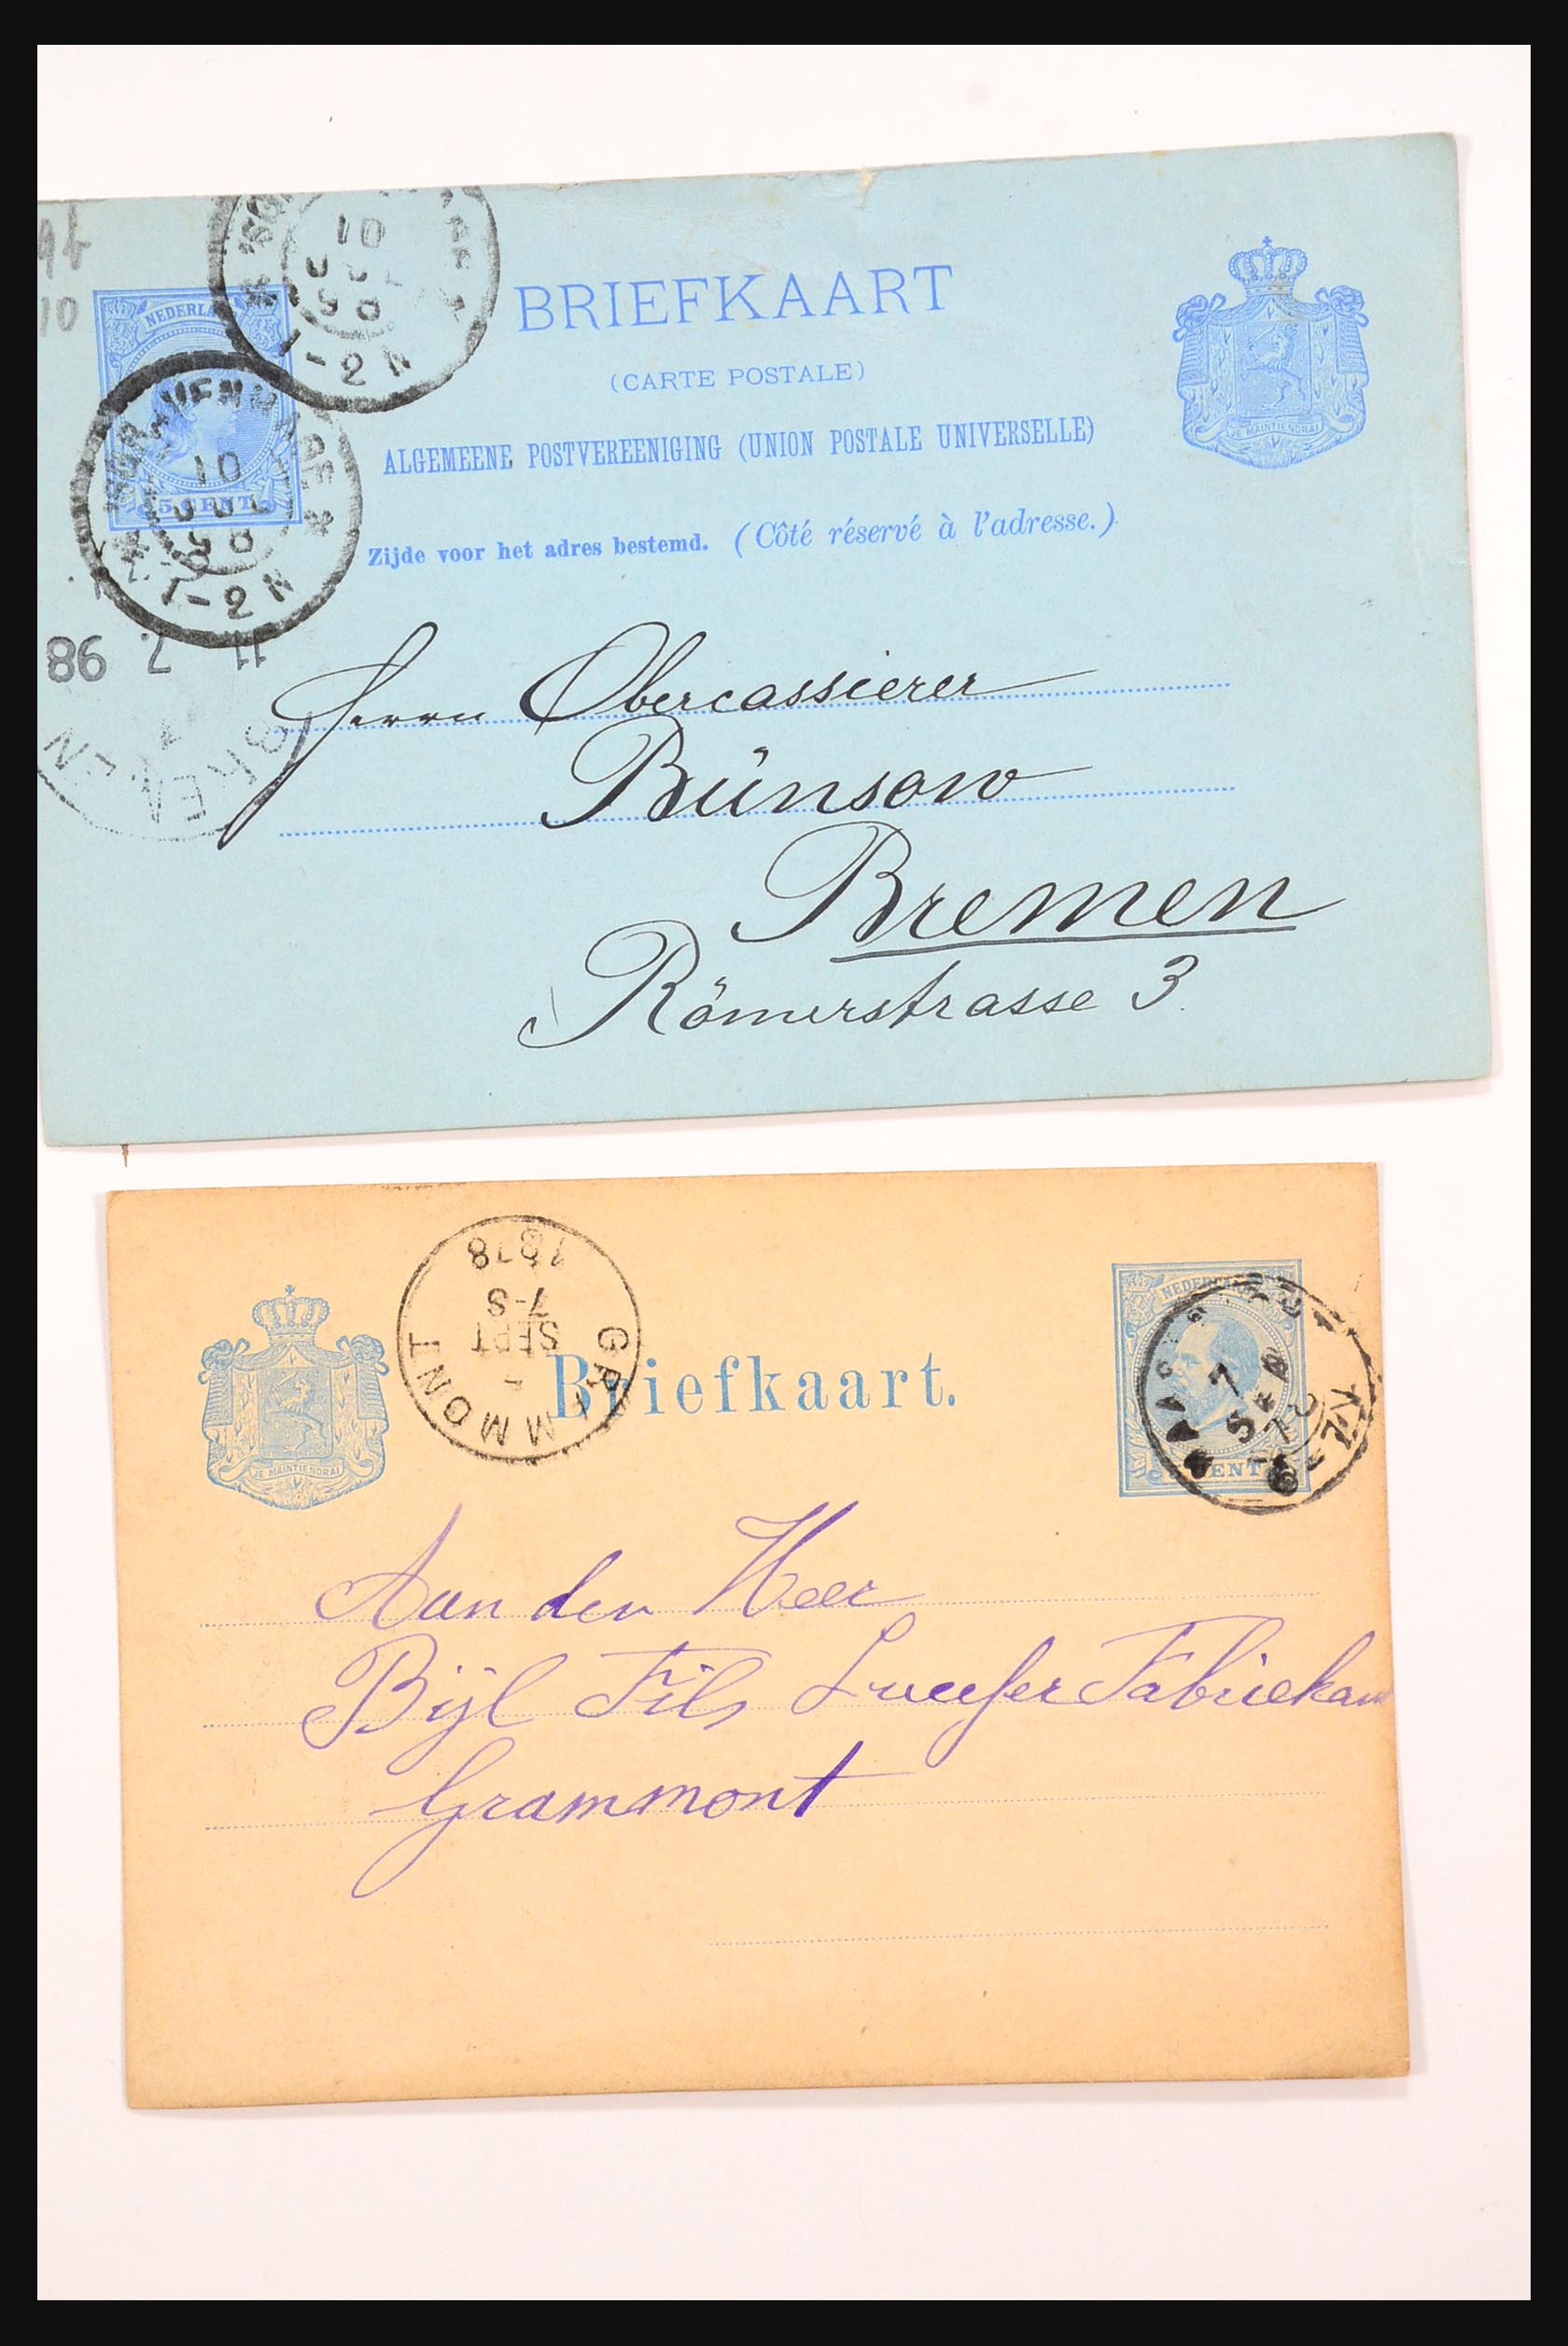 96
10
10
JUL
98
1-2N
NEDERLA
5 CENT
'SGRAVENHAGE
10
JUL
98
1-2N
BRIEFKAART
(CARTE POSTALE)
ALGEMEENE POSTVEREENIGING (UNION POSTALE UNIVERSELLE)
Zijde voor het adres bestemd. (Côté réservé à l'adresse.)
JE MAINTIENDRAI
11 7. 98
BREMEN
Herrn Obercassierer
Bünsow
Bremen
Römerstrasse 3.
GRAMMONT
SEPT
7-S
1878
JE MAINTIENDRAI
Briefkaart.
NEDERLAND
CENT
7
SEP
78
Aan den Heer
Bijl Fils Lucifer Fabriekan
Grammont